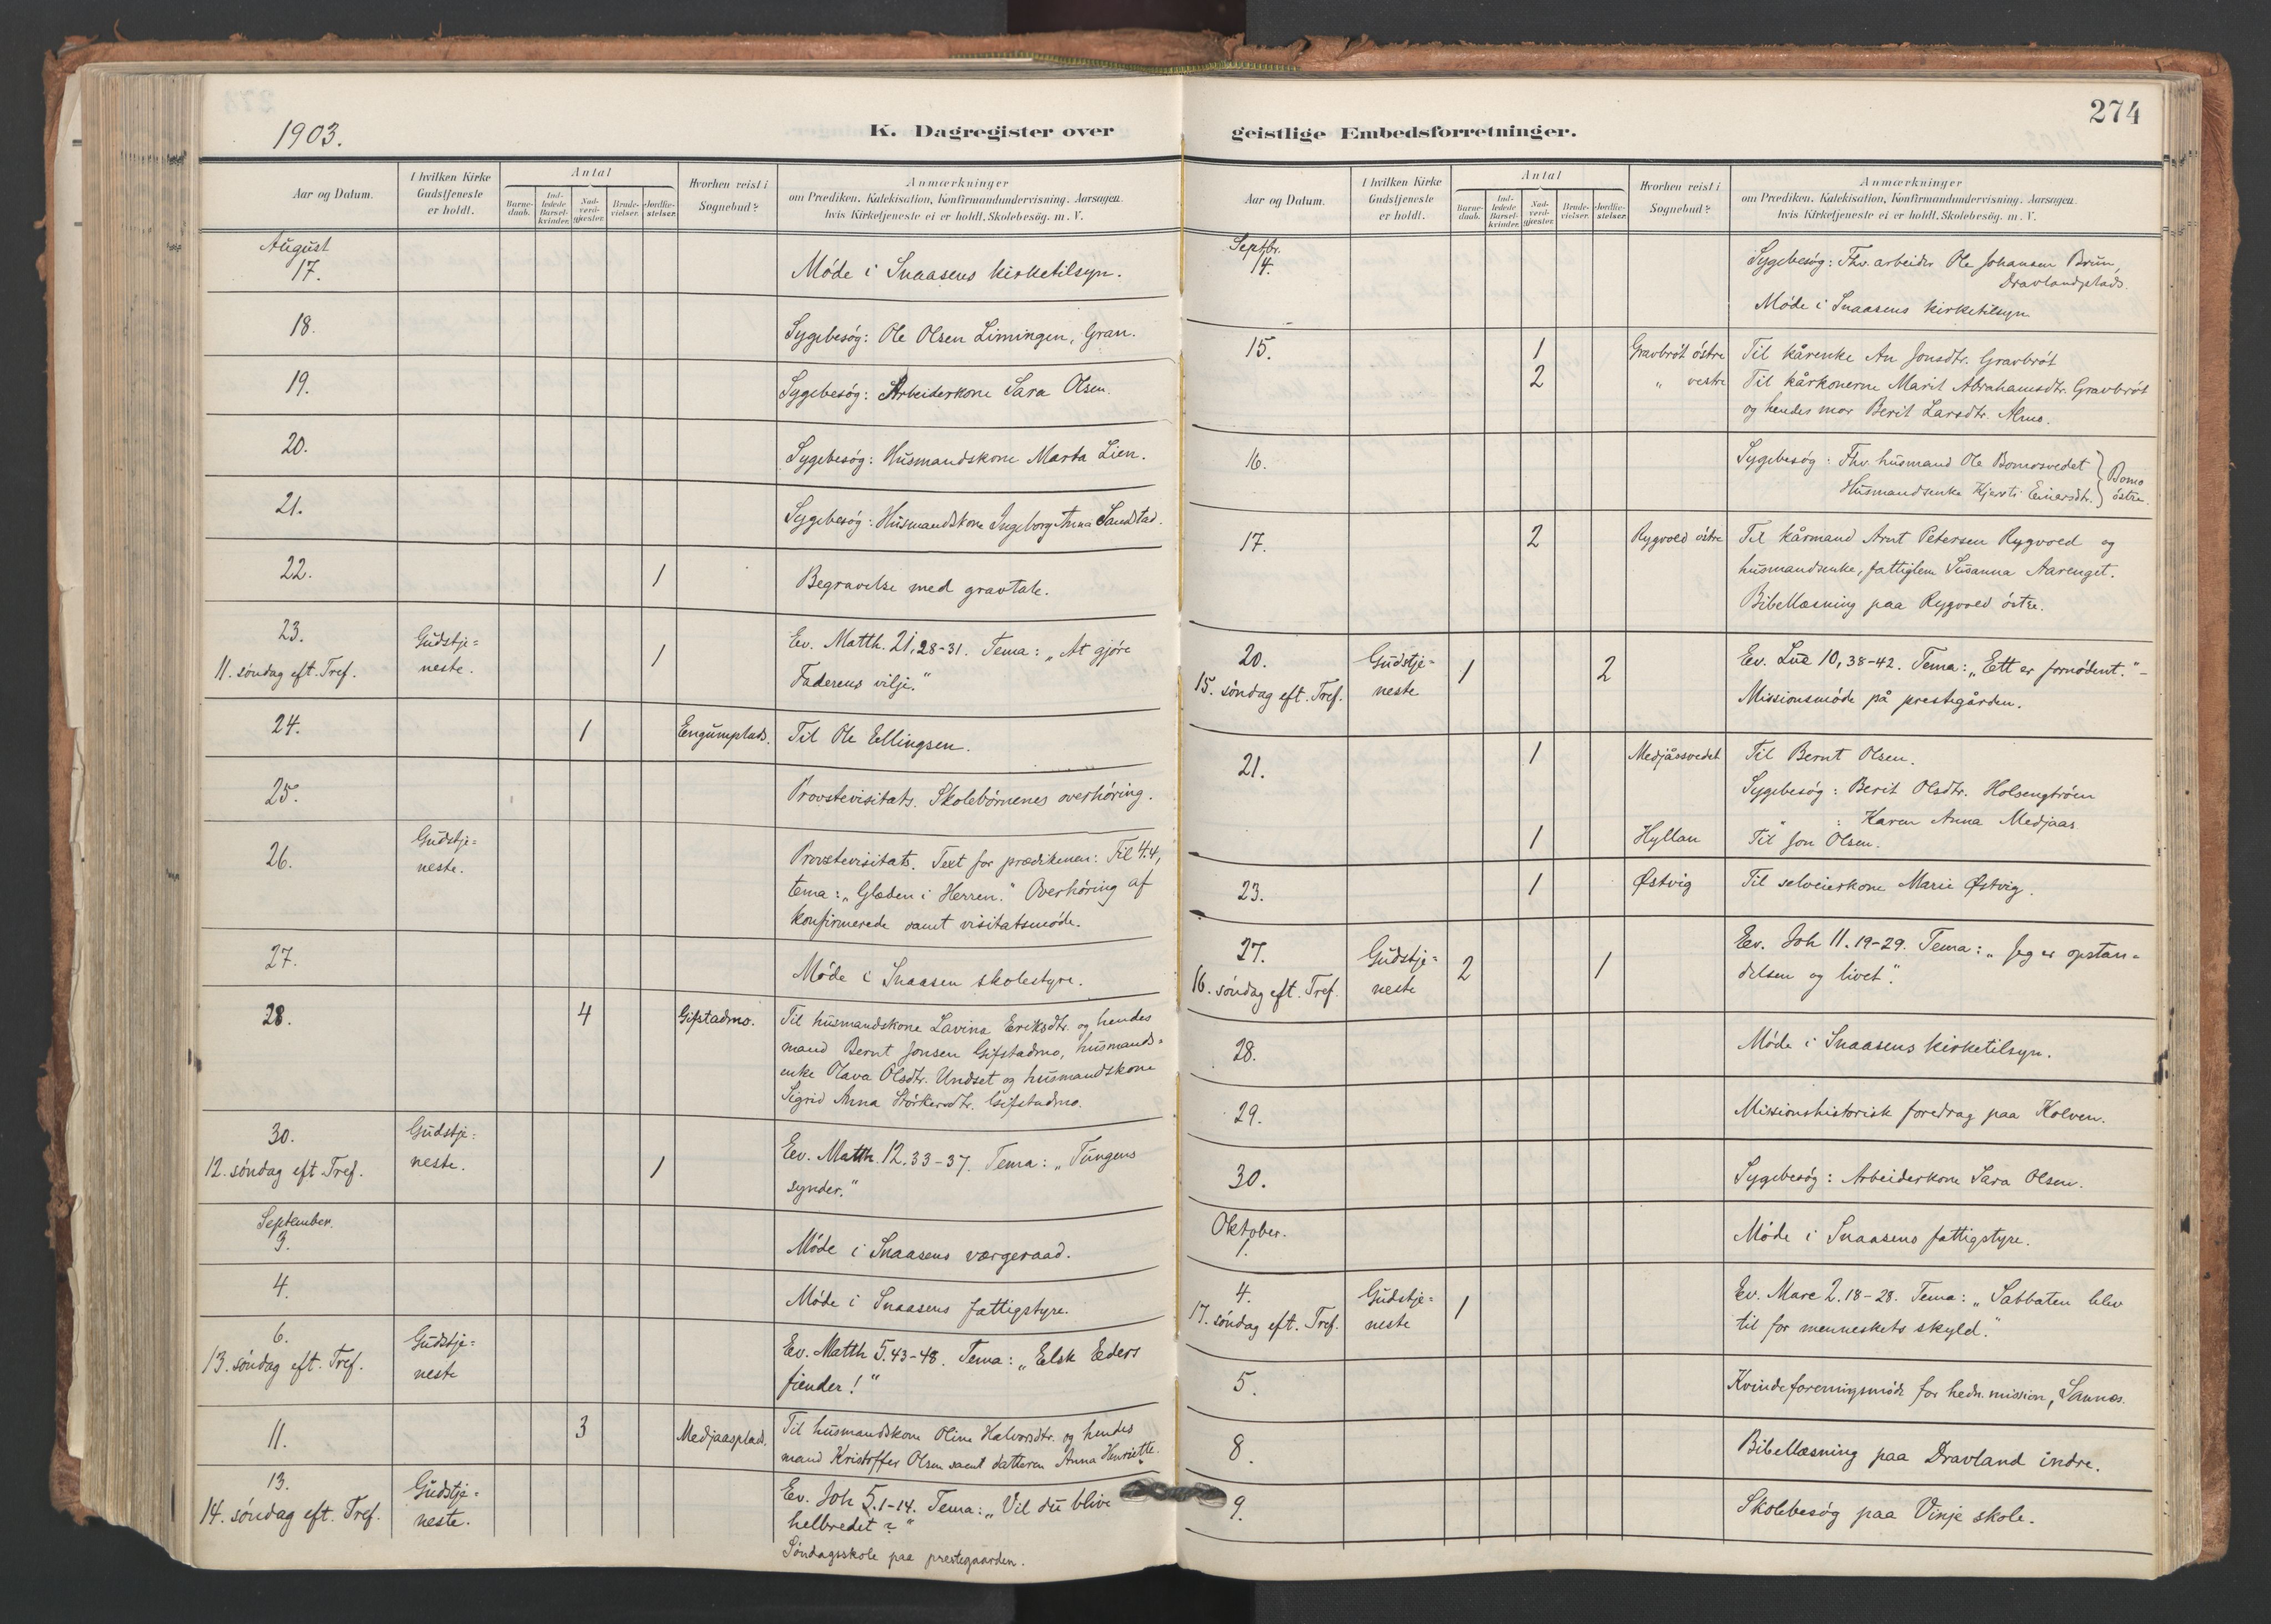 274
1903.
K. Dagregister over
geistlige Embedsforretninger.
Aar og Datum.
I hvilken Kirke Gudstjeneste er holdt.
Antal
Barnedaab.
Indledede Barselkvinder.
Nadverdgjester.
Brudevielser.
Jordfæstelser.
Hvorhen reist i Sognebud?
Anmærkninger
om Prædiken. Katekisation, Konfirmandundervisning. Aarsagen
hvis Kirketjeneste ei er holdt. Skolebesøg. m. V.
August
17. Møde i Snaasens kirketilsyn.
18. Sygebesøg: Ole Olsen Limingen, Gran.
19. Sygebesøg: Arbeiderkone Sara Olsen.
20. Sygebesøg: Husmandskone Marta Lien.
21. Sygebesøg: Husmandskone Ingeborg Anna Sandstad.
22. 1 Begravelse med gravtale.
23. Gudstje= 1 Ev. Matth. 21, 28-31. Tema: „At gjøre
11. søndag eft. Tref. neste. Faderens vilje."
24. 1 Engumplads. Til Ole Ellingsen.
25. Provstevisitats. Skolebørnenes overhøring.
26. Gudstje= Provstevisitats. Text for prædikenen: Fil 4.4,
neste. tema: „Glæden i Herren." Overhøring af
konfirmerede samt visitatsmøde.
27. Møde i Snaasen skolestyre.
28. 4 Gifstadmo. Til husmandskone Lavina Eriksdtr. og hendes
mand Bernt Jonsen Gifstadmo, husmands=
enke Olava Olsdtr. Undset og husmandskone
Sigrid Anna Størkersdtr. Gifstadmo.
30. Gudstje= Ev. Matth. 12.33-37. Tema: „Tungens
12. søndag eft. Tref. neste. 1 synder."
September.
3. Møde i Snaasens værgeraad.
4. Møde i Snaasens fattigstyre.
6. Gudstje= Ev. Matth 5.43-48. Tema: „Elsk Eders
13. søndag eft. Tref. neste fiender!"
11. 3 Medjaasplads. Til husmandskone Oline Halvorsdtr. og hendes
mand Kristoffer Olsen samt datteren Anna Henriette.
13. Gudstje= Ev. Joh 5.1-14. Tema: „Vil du blive
14. søndag eft. Tref. neste. helbredet?"
Søndagsskole paa prestegaarden.
Aar og Datum.
I hvilken Kirke Gudstjeneste er holdt.
Antal
Barnedaab.
Indledede Barselkvinder.
Nadverdgjester.
Brudevielser.
Jordfæstelser.
Hvorhen reist i Sognebud?
Anmærkninger
om Prædiken. Katekisation, Konfirmandundervisning. Aarsagen
hvis Kirketjeneste ei er holdt. Skolebesøg. m. V.
Septbr.
14. Sygebesøg: Fhv. arbeider Ole Johansen Brun,
Dravlandplads.
Møde i Snaasens kirketilsyn
15. 1 Gravbrøt østre Til kårenke An Jonsdtr. Gravbrøt
2 „ vestre Til kårkonerne Marit Abrahamsdtr. Gravbrøt
og hendes mor Berit Larsdtr. Almo.
16. Sygebesøg: Fhv. husmand Ole Bomosvedet } Bomo
Husmandsenke Kjersti Einarsdtr. } østre.
17. 2 Rygvold østre Til kårmand Arnt Petersen Rygvold og
husmandsenke, fattiglem Susanna Aarenget.
Bibellæsning paa Rygvold østre.
20. Gudstje= 1 2 Ev. Luc 10, 38-42. Tema: „Ett er fornødent." -
15. søndag eft. Tref. neste Missionsmøde på prestegården.
21. 1 Medjåssvedet Til Bernt Olsen.
Sygebesøg: Berit Olsdtr. Holsengtrøen
„ : Karen Anna Medjaas
1 Hyllan Til Jon Olsen.
23. 1 Østvig Til selveierkone Marie Østvig.
27. Gudstje= 2 1 Ev. Joh 11.19-29. Tema: „Jeg er opstan=
16. søndag eft. Tref. neste delsen og livet".
28. Møde i Snaasens kirketilsyn.
29. Missionshistorisk foredrag paa Kolven.
30. Sygebesøg: Arbeiderkone Sara Olsen.
Oktober.
1. Møde i Snaasens fattigstyre.
4. Gudstje= 1 Ev. Marc 2.18-28. Tema: „Sabbaten blev
17. søndag eft. Tref. neste til for menneskets skyld."
5. Kvindeforeningsmøde for hedn. mission, Sannes.
8. Bibellæsning paa Dravland indre.
9. Skolebesøg paa Vinje skole.